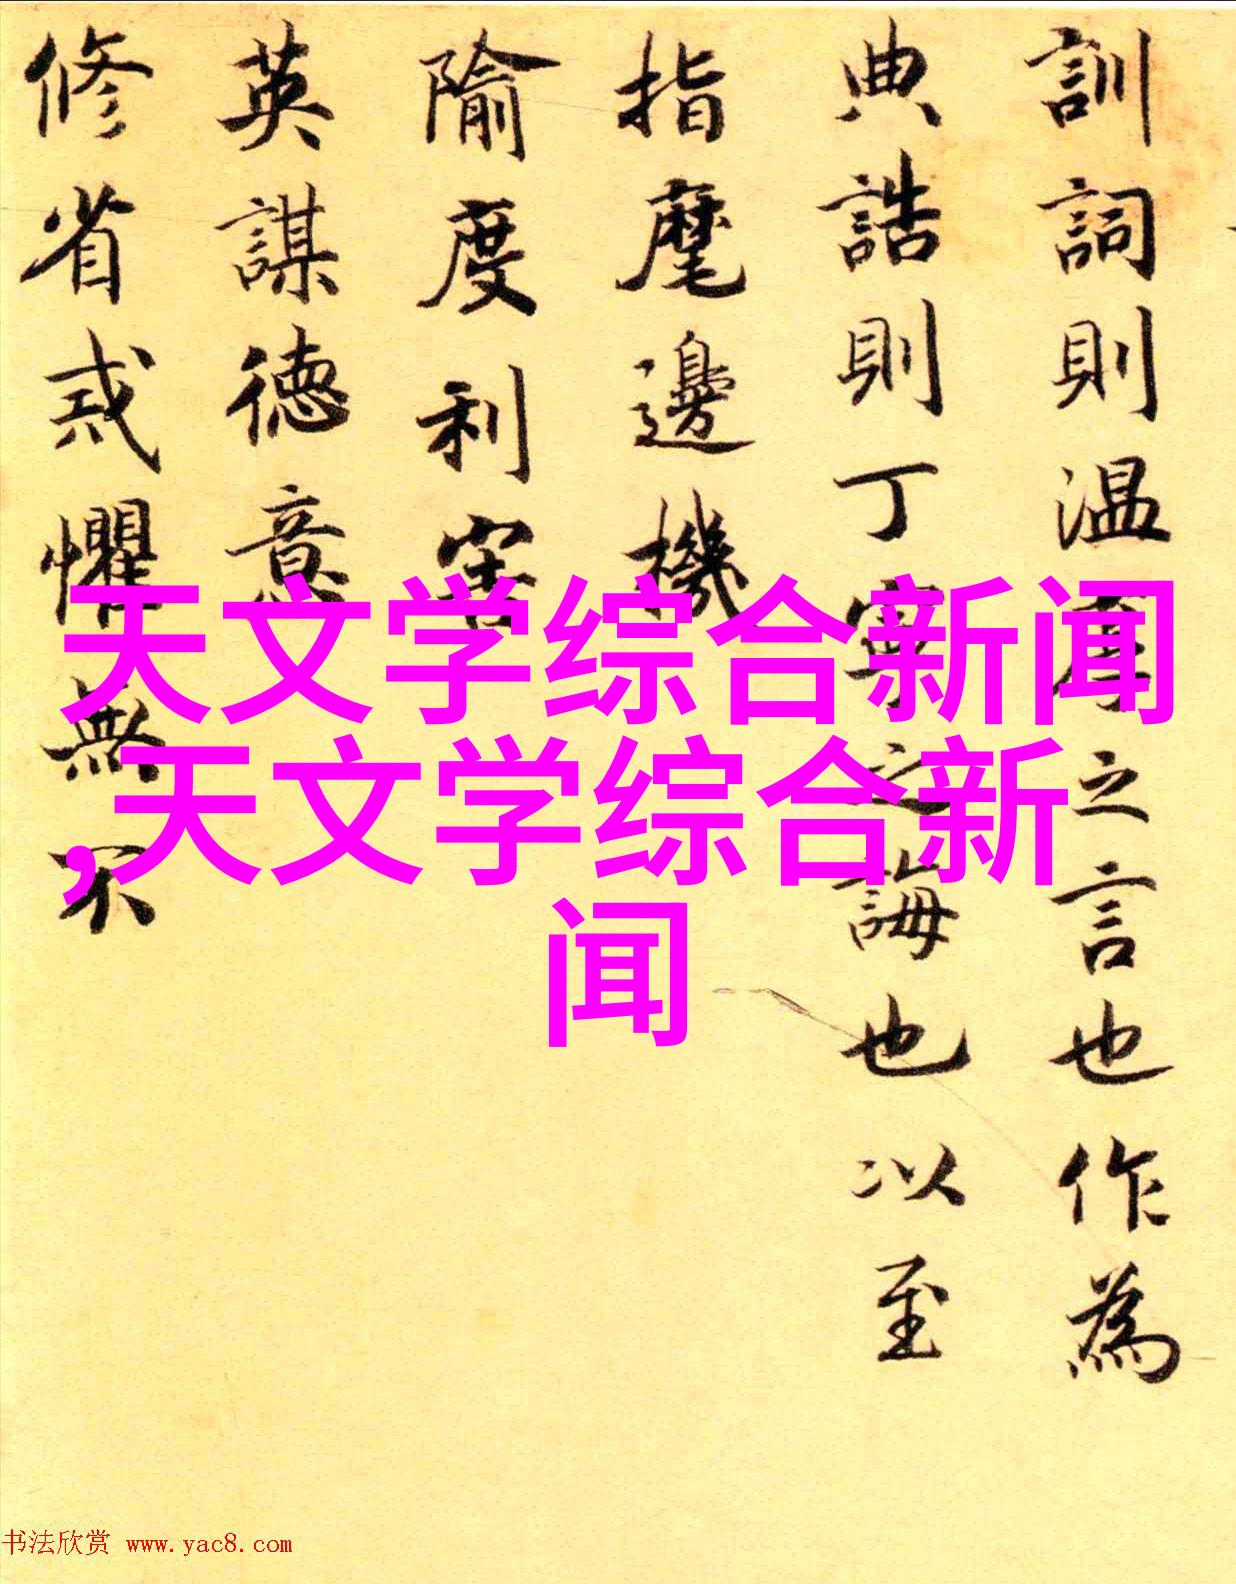 訓詞則温厚之言也作為
典誥則丁寧之誨也以至
指麾邊機
隃度利害
英謀徳意
修省戒懼無不
天文学综合新闻
,天文学综合新
闻
书法欣赏 www.yac8.com